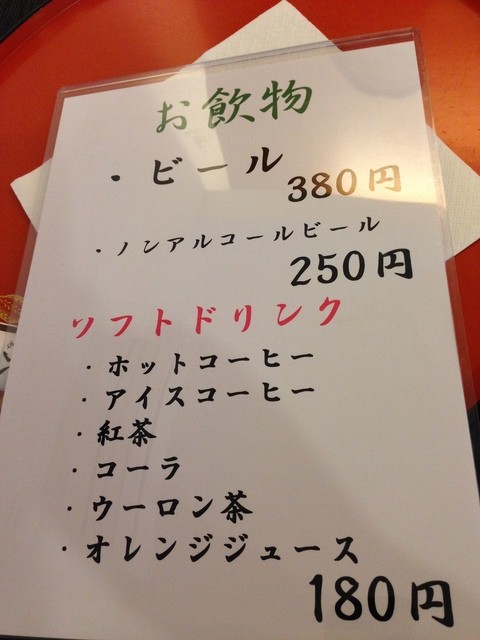 お飲物
・ビール
380円
・ノンアルコールビール
250円
ソフトドリンク
・ホットコーヒー
・アイスコーヒー
・紅茶
・コーラ
・ウーロン茶
・オレンジジュース
180円